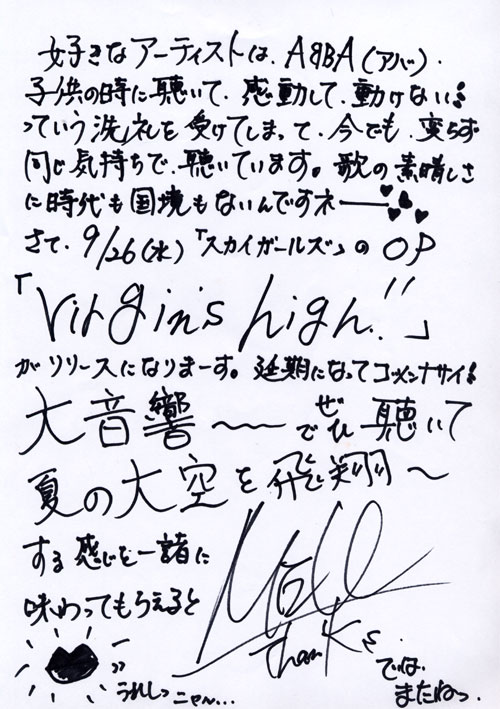 好きなアーティストは、ABBA(アバ)。
子供の時に聴いて、感動して、動けない!!
っていう洗礼を受けてしまって、今でも、変らず
同じ気持ちで、聴いています。歌の素晴しさ
に時代も国境もないんですネ――
さて、9/26(水)「スカイガールズ」のOP
「Virgin's high!!」
がリリースになりまーす。延期になってゴメンナサイ!
大音響〜〜でぜひ聴いて
夏の大空を飛翔〜
する感じを一諸に
味わってもらえると
うれしっ ニャ〜...
thanks.
では、
またねっ。